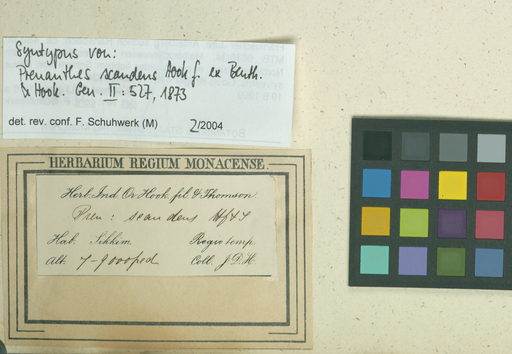 Syntypus von:
Prenanthes scandens Hook f. ex Benth.
& Hook. Gen. II: 527, 1873
det. rev. conf. F. Schuhwerk (M) 2/2004
HERBARIUM REGIUM MONACENSE.
Herb. Ind. Or. Hook. fil. & Thomson.
Pren: scandens Hf & T
Hab. Sikkim Regio temp.
Alt. 7-9000 ped Coll. J.D.H.